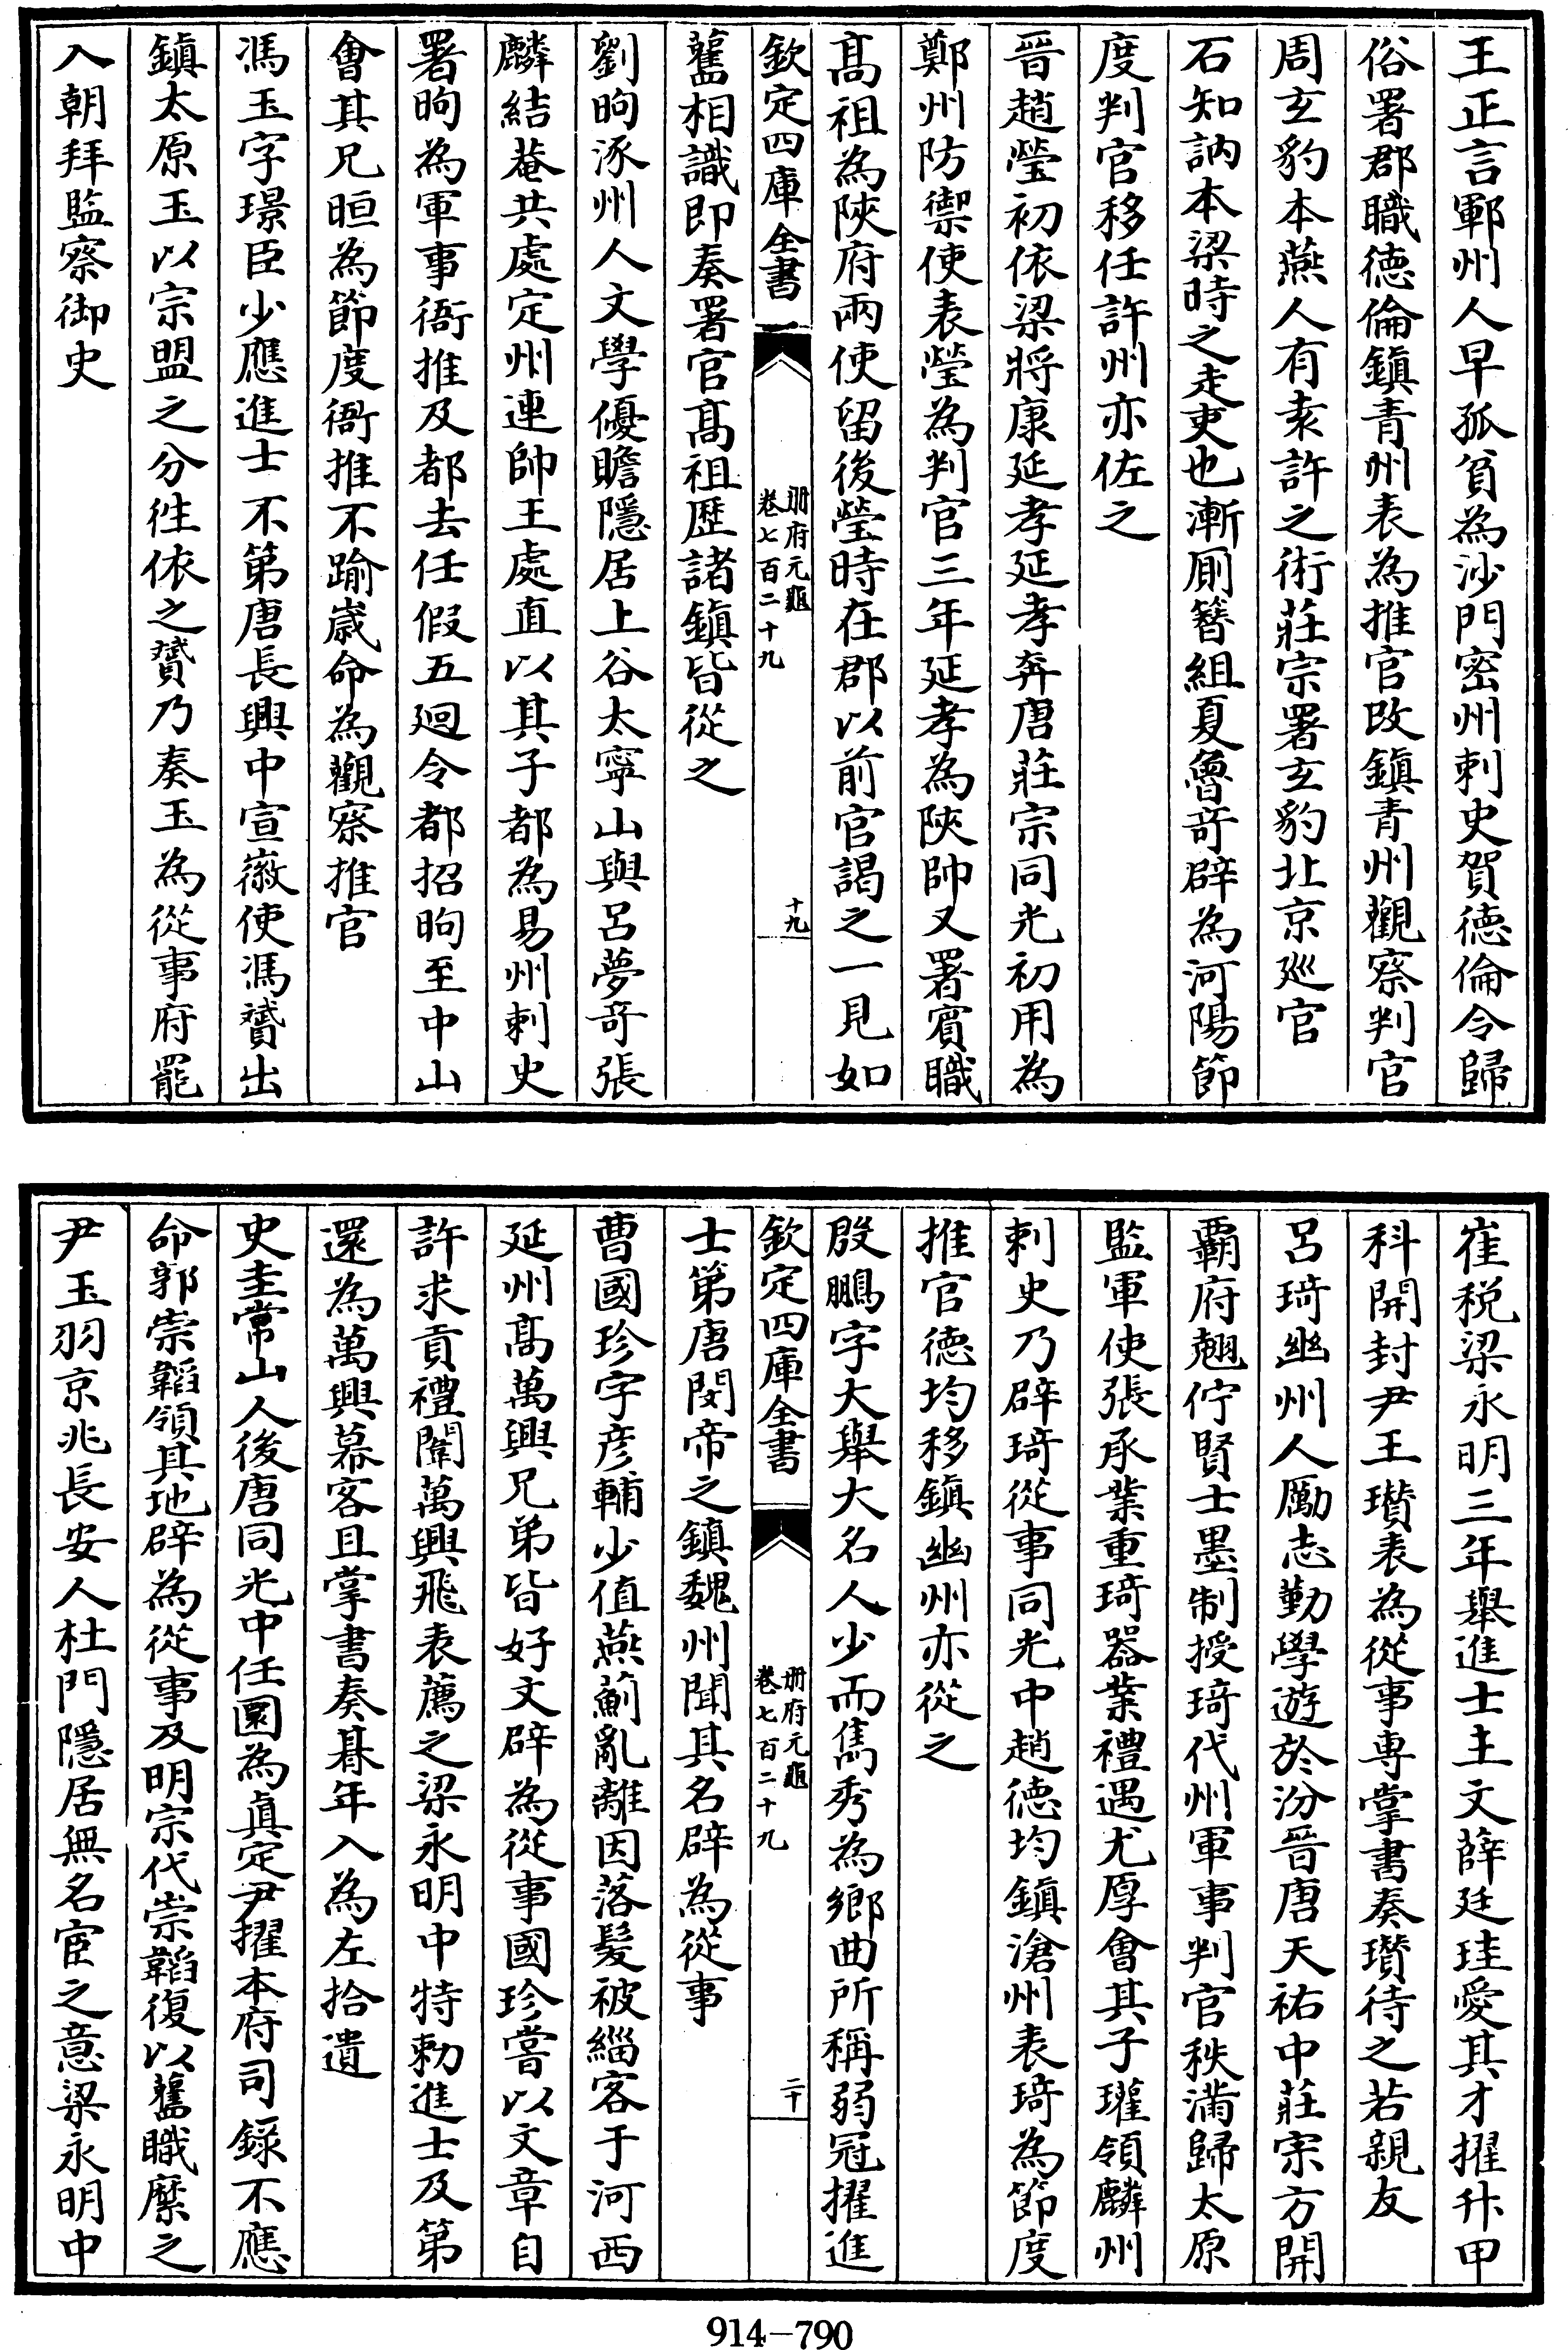 王正言鄆州人早孤貧為沙門密州刺史賀德倫令歸
俗署郡職德倫鎮青州表為推官改鎮青州觀察判官
周玄豹本燕人有袁許之術莊宗署玄豹北京廵官
石知訥本梁時之走吏也漸厠簪組夏魯竒辟為河陽節
度判官移任許州亦佐之
晉趙瑩初依梁將康延孝延孝奔唐莊宗同光初用為
鄭州防禦使表瑩為判官三年延孝為陝帥又署賓職
髙祖為陝府兩使留後瑩時在郡以前官謁之一見如
欽定四庫全書
冊府元龜
卷七百二十九
十九
舊相識即奏署官髙祖歷諸鎮皆從之
劉昫涿州人文學優贍隱居上谷太寧山與呂夢竒張
麟結菴共處定州連帥王處直以其子都為易州刺史
署昫為軍事衙推及都去任假五廻令都招昫至中山
會其兄暄為節度衙推不踰歲命為觀察推官
馮玉字璟臣少應進士不第唐長興中宣徽使馮贇出
鎮太原玉以宗盟之分徃依之贇乃奏玉為從事府罷
入朝拜監察御史
崔稅梁永明三年舉進士主文薛廷珪愛其才擢升甲
科開封尹王瓚表為從事專掌書奏瓚待之若親友
呂琦幽州人勵志勤學遊於汾晉唐天祐中莊宗方開
覇府翹佇賢士墨制授琦代州軍事判官秩滿歸太原
監軍使張承業重琦器業禮遇尤厚會其子瓘領麟州
刺史乃辟琦從事同光中趙德均鎮滄州表琦為節度
推官德均移鎮幽州亦從之
殷鵬字大舉大名人少而雋秀為鄉曲所稱弱冠擢進
欽定四庫全書
冊府元龜
卷七百二十九
二十
士第唐閔帝之鎮魏州聞其名辟為從事
曹國珍字彦輔少值燕薊亂離因落髮被緇客于河西
延州髙萬興兄弟皆好文辟為從事國珍嘗以文章自
許求貢禮闈萬興飛表薦之梁永明中特勅進士及第
還為萬興幕客且掌書奏朞年入為左拾遺
史圭常山人後唐同光中任圜為真定尹擢本府司錄不應
命郭崇韜領其地辟為從事及明宗代崇韜復以舊職縻之
尹玉羽京兆長安人杜門隱居無名宦之意梁永明中
914—790